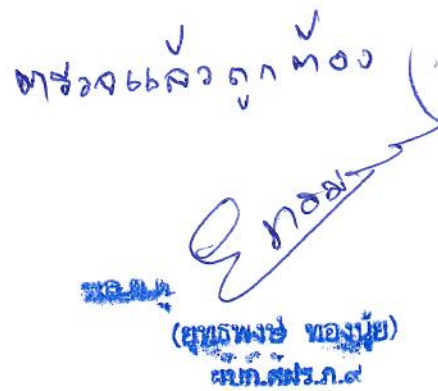 ตรวจแล้วถูกต้อง
พ.ต.ต.
(ยุทธพงษ์ ทองนุ้ย)
ผบก.ศฝร.ภ.๙